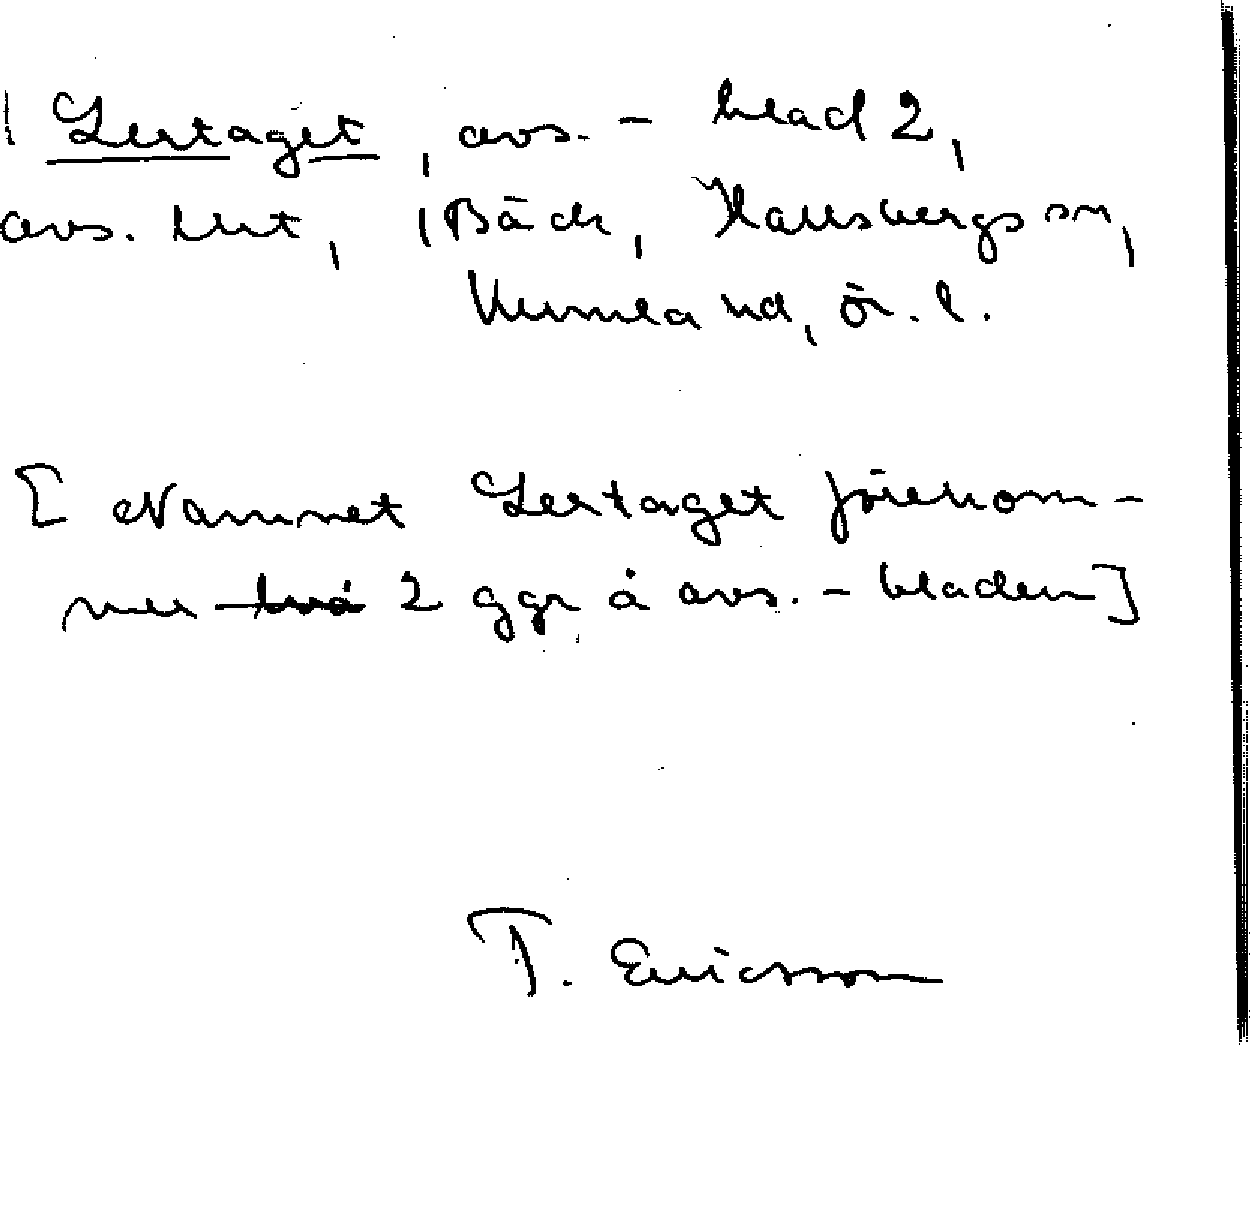 Lertaget, avs. - blad 2,
avs. slut, (Bäck, Hallsbergs sn,
Kumla hd, Ör. l.
[Namnet Lertaget förekom-
mer två 2 ggr å avs. - bladen]
T. Ericsson